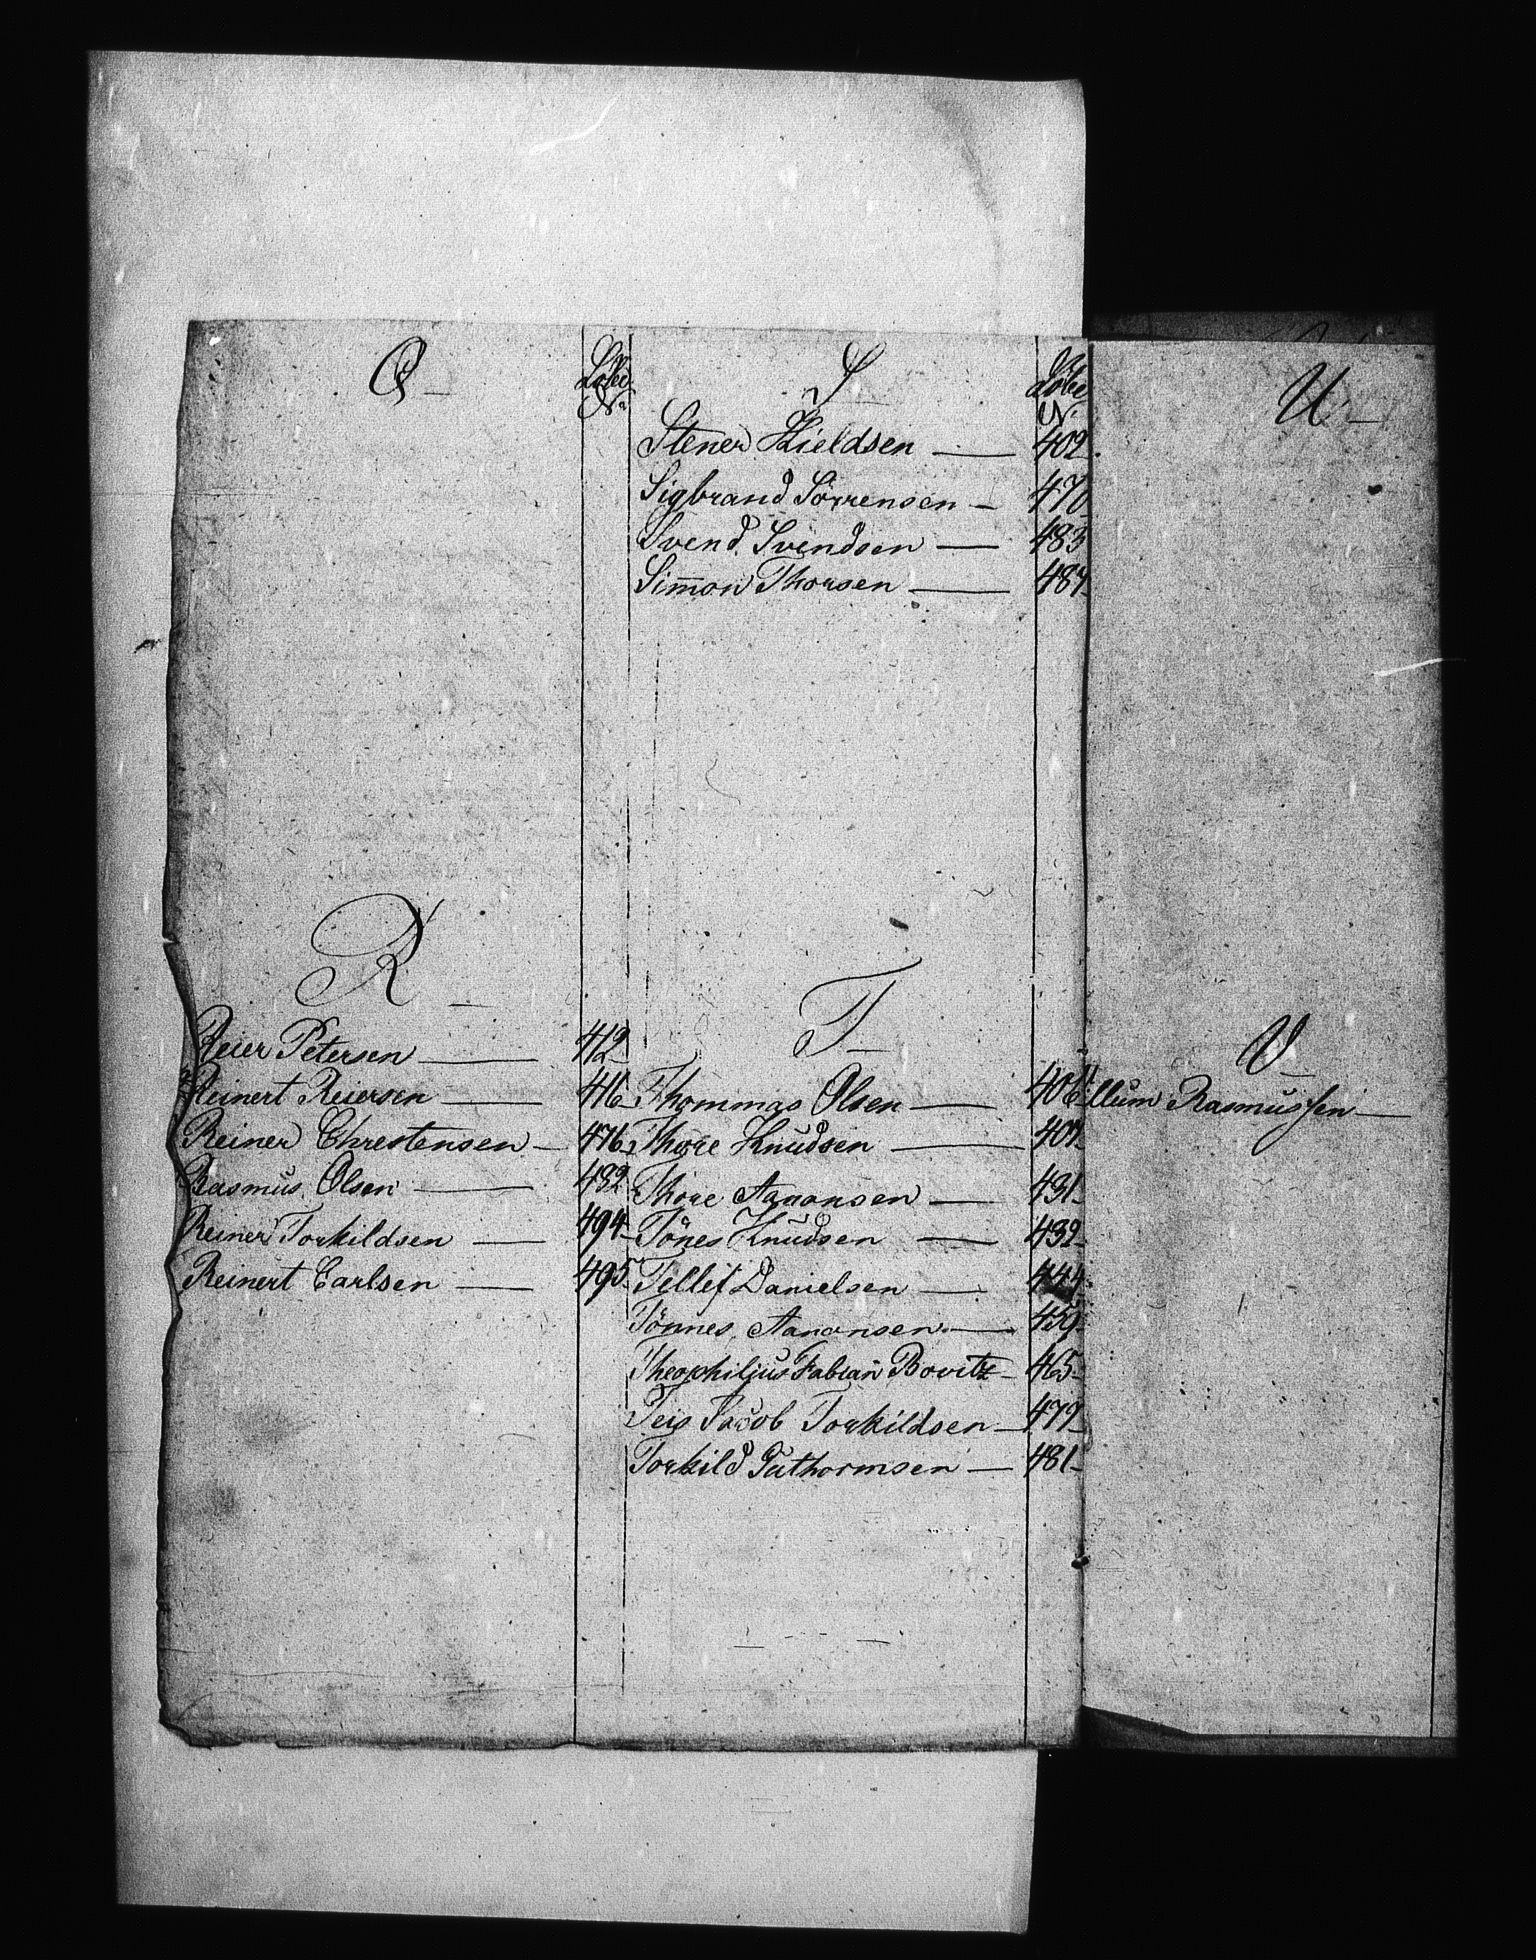 Q
Løbe
No
R
Reier Petersen 412
Reinert Reiersen 416
Reiner Chrestensen 476
Rasmus Olsen 482
Reiner Torkildsen 494
Reinert Carlsen 495
S
Løbe
No
Stener Kieldsen 402
Sigbrand Sörrensen 470
Svend Svendsen 483
Simon Thorsen
T
Thommas Olsen 406
Thore Knudsen
Thore Aanonsen 431
Tönes Knudsen 432
Tellef Danielsen 444
Tönnes Aanonsen 459
Theophilius Fabian Bovitz 465
Teis Jacob Torkildsen 479
Torkild Guthormsen 481
U
V
llum Rasmussen